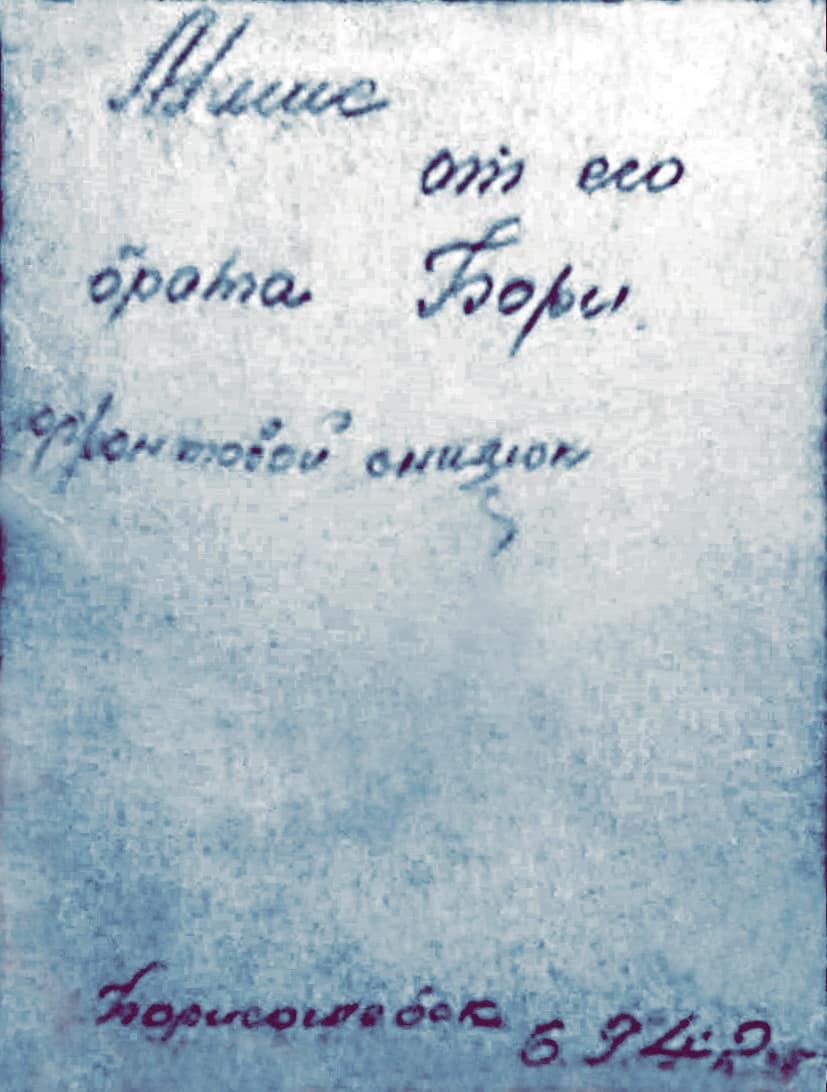 от его
брата Бори
фронтовой снимок
Борисоглебск